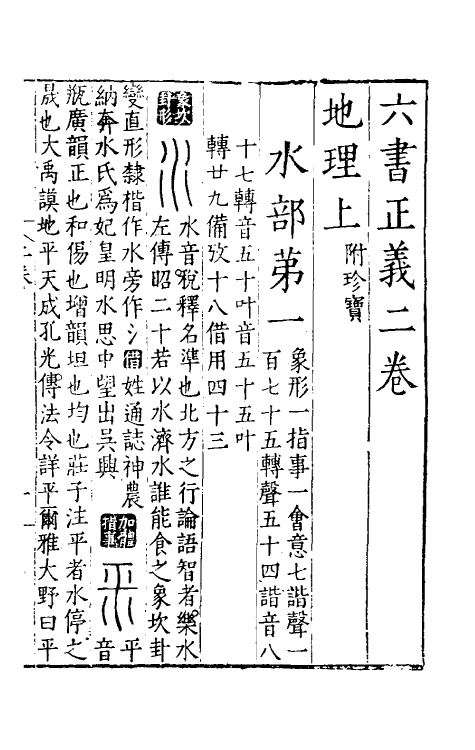 六書正義二卷
地理上附珍寶
水部第一
象形一指事一會意七諧聲一
百七十五轉聲五十四諧音八
十七轉音五十叶音五十五叶
轉廿九備攷十八借用四十三
象坎
卦形
水音稅釋名準也北方之行論語智者樂水
左傳昭二十若以水濟水誰能食之象坎卦
變直形隸楷作水旁作氵借姓通誌神農
納奔水氏爲妃皇明水思中望出吳興
加體
指事
平
音
瓶廣韻正也和傷也增韻坦也均也莊子注平者水停之
晟也大禹謨地平天成孔光傳法令詳平爾雅大野曰平